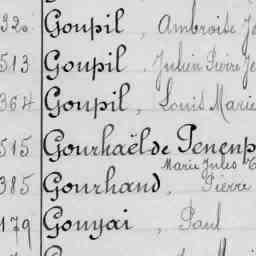 920 Goupil, Ambroise
513 Goupil, Julien Pierre
364 Goupil, Louis Marie
515 Gourhaël de Penenp
Marie Jules
385 Gourhand, Pierre
179 Gouyai, Paul